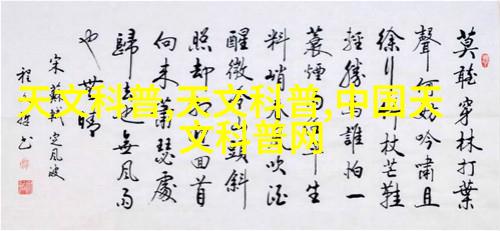 天文科普,天文科普,中国天
文科普网
莫聽穿林打葉
聲何妨吟嘯且
徐行竹杖芒鞋
輕勝馬誰怕一
蓑煙雨任平生
料峭春風吹酒
醒微冷山頭斜
照却相迎回首
向来蕭瑟處
歸去也無風雨
也無晴
宋蘇軾定風波
程